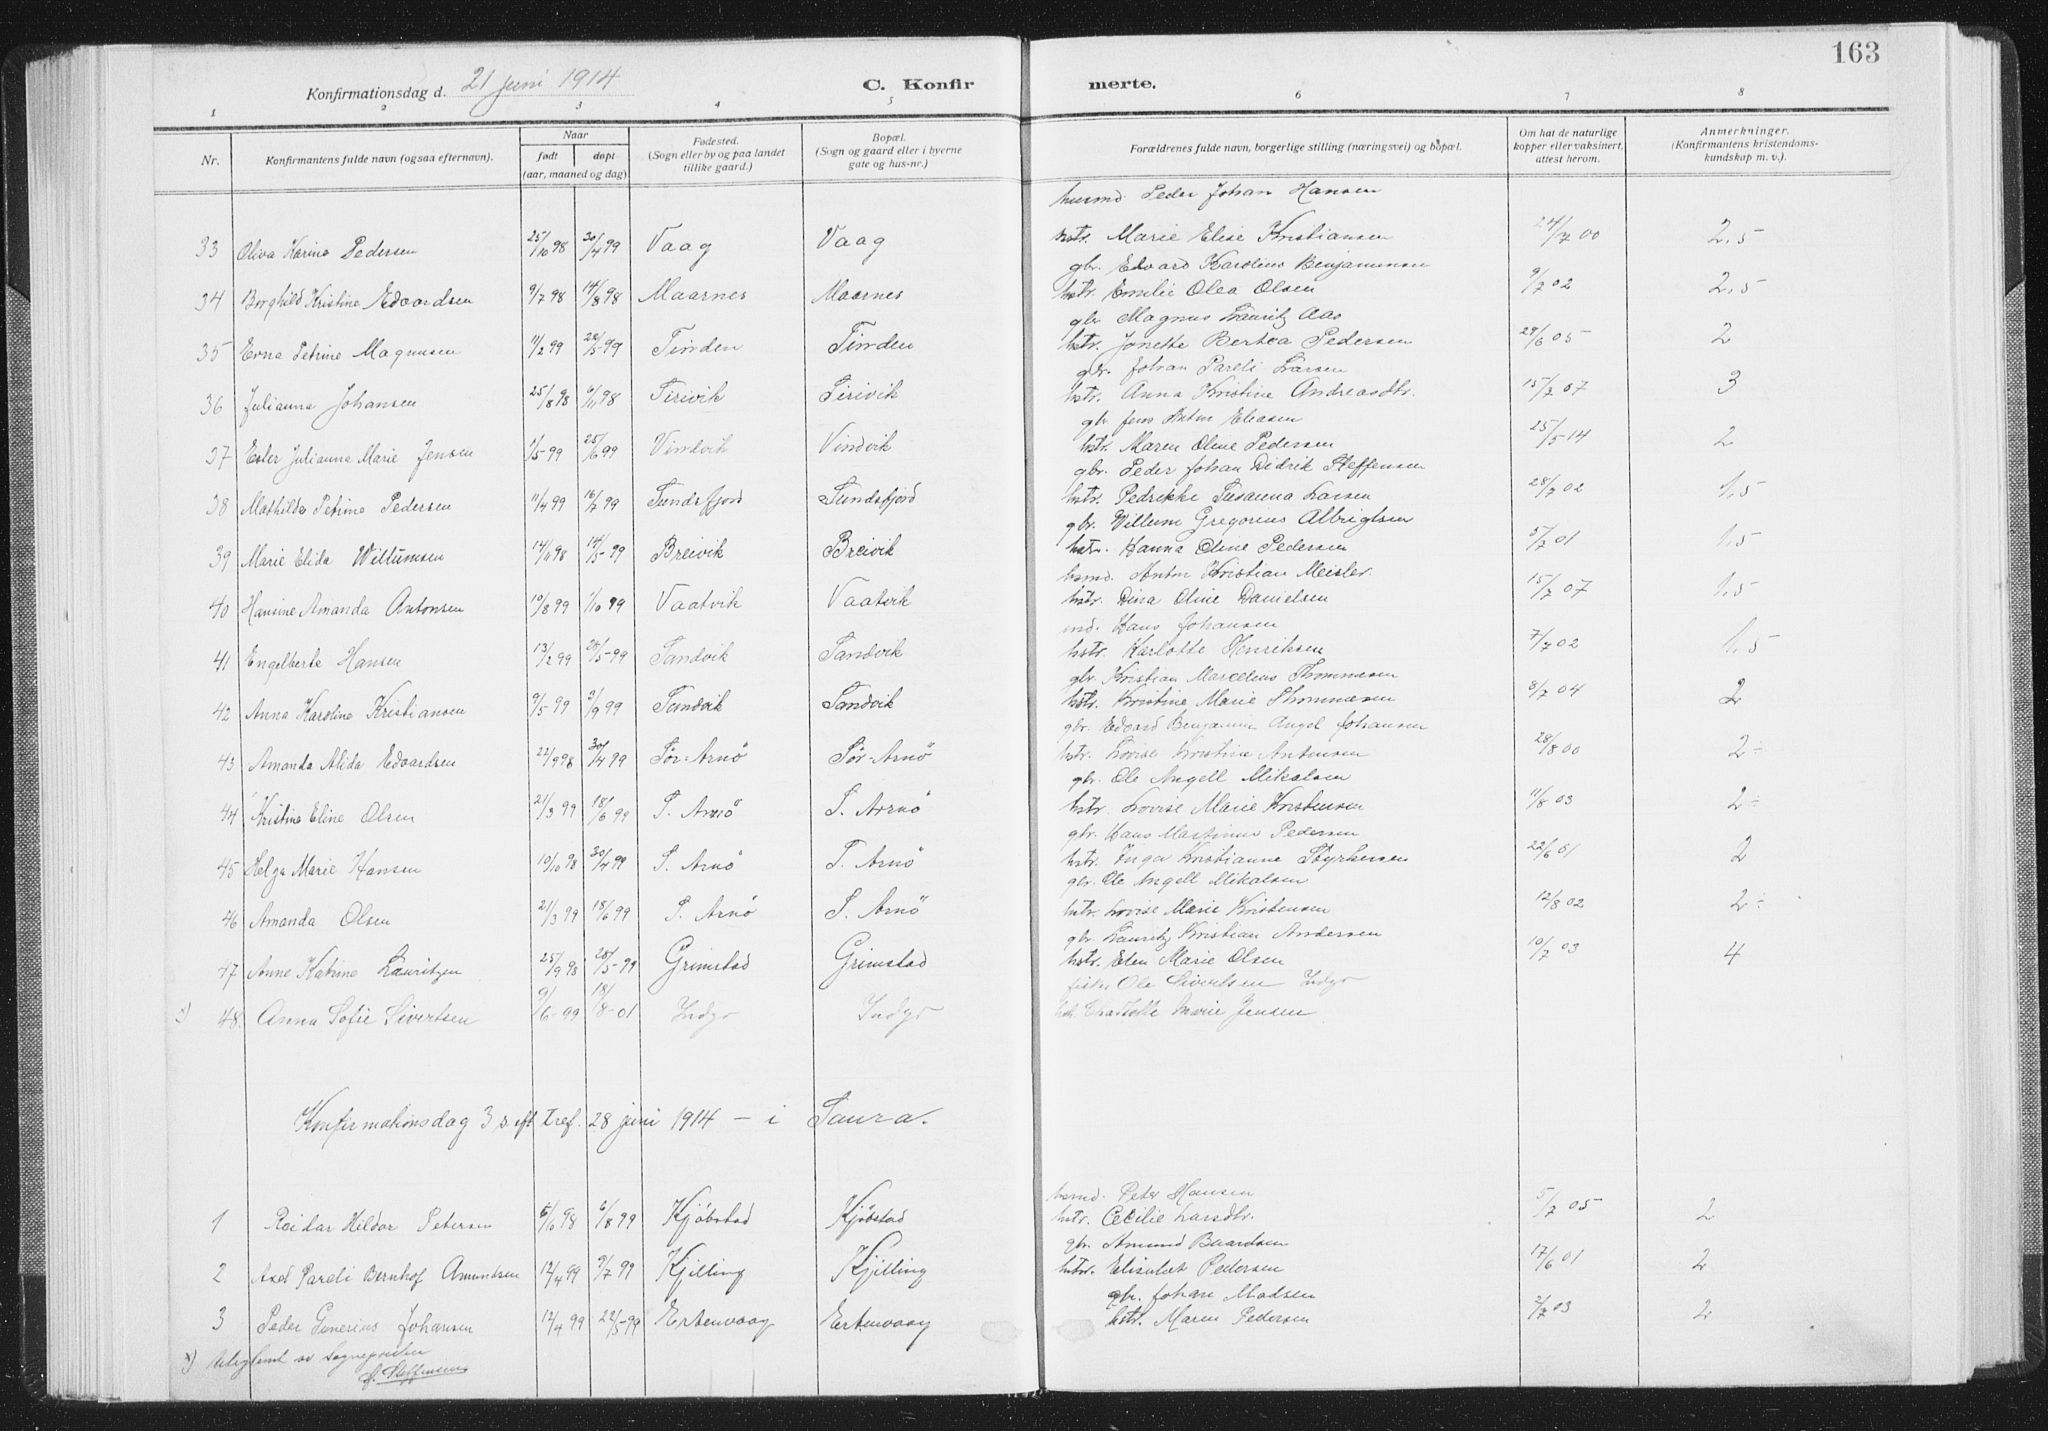 163
Konfirmationsdag d. 21 juni 1914 C. Konfir merte.
1 2 3 4 5 6 7 8
Nr. Konfirmantens fulde navn (ogsaa efternavn). Naar født døpt (aar, maaned og dag) Fødested. (Sogn eller by og paa landet tillike gaard.) Bopæl. (Sogn og gaard eller i byerne gate og hus-nr.) Forældrenes fulde navn, borgerlige stilling (næringsvei) og bopæl. Om hat de naturlige kopper eller vaksinert, attest herom. Anmerkninger. (Konfirmantens kristendoms-kundskap m. v.).
husmd. Peder Johan Hansen
33 Oliva Karine Pedersen 25/10 98 30/4 99 Vaag Vaag hstr. Marie Elise Kristiansen 24/7 00 2,5
gbr. Edvard Karolius Benjaminsen
34 Borghild Kristine Edvardsen 9/7 98 14/8 98 Maarnes Maarnes hstr. Emilie Olea Olsen 9/7 02 2,5
gbr. Magnus Lauritz Aas
35 Erna Petrine Magnusen 11/2 99 22/5 99 Tinden Tinden hstr. Jonette Bertea Pedersen 29/6 05 2
gbr. Johan Pareli Larsen
36 Julianna Johansen 25/8 98 6/11 98 Sirivik Sirivik hstr. Anna Kristine Andreasdtr. 15/7 07 3
gbr. Jens Anton Eliasen
37 Ester Julianna Marie Jensen 1/5 99 25/6 99 Vindvik Vindvik hstr. Maren Oline Pedersen 25/5 14 2
gbr. Peder Johan Didrik Steffensen
38 Mathilde Petrine Pedersen 11/4 99 16/7 99 Sundsfjord Sundsfjord hstr. Pedrikke Susanna Larsen 28/7 02 1,5
gbr. Willum Gregorius Albrigtsen
39 Marie Elida Willumsen 14/11 98 14/5 99 Breivik Breivik hstr. Hanna Oline Pedersen 5/7 01 1,5
hsmd. Anton Kristian Meisler.
40 Hansine Amanda Antonsen 10/8 99 1/10 99 Vaatvik Vaatvik hstr. Dina Oline Danielsen 15/7 07 1,5
ind. Hans Johansen
41 Engelberte Hansen 13/2 99 28/5 99 Sandvik Sandvik hstr. Karlotte Henriksen 7/7 02 1,5
gbr. Kristian Marcelius Thommesen
42 Anna Karoline Kristiansen 9/5 99 3/9 99 Sandvik Sandvik hstr. Kristine Marie Thommesen 8/7 04 2
gbr. Edvard Benjamin Angel Johansen
43 Amanda Alida Edvardsen 22/9 98 30/4 99 Sør-Arnö Sør-Arnö hstr. Lovise Kristine Antonsen 28/8 00 2÷
gbr. Ole Angell Mikalsen
44 Kristine Eline Olsen 21/3 99 18/6 99 S. Arnö S. Arnö hstr. Lovise Marie Kristensen 11/8 03 2÷
gbr. Hans Martinus Pedersen
45 Helga Marie Hansen 10/10 98 30/4 99 S. Arnö S. Arnö hstr. Inga Kristianne Styrkersen 22/6 01 2
gbr. Ole Angell Mikalsen
46 Amanda Olsen 21/3 99 18/6 99 S. Arnö S. Arnö hstr. Lovise Marie Kristensen 12/8 02 2÷
gbr. Lauritz Kristian Andersen
47 Anne Katrine Lauritzen 25/9 98 28/5 99 Grimstad Grimstad hstr. Elen Marie Olsen 10/7 03 4
fisker Ole Sivertsen Indyr
x) 48. Anna Sofie Sivertsen 9/6-99 18/8-01 Indyr Indyr hstr. Charlotte Marie Jensen
Konfirmationsdag 3 s. eft tref. 28 juni 1914 - i Saura.
hsmd. Peter Hansen
1 Reidar Hildor Petersen 5/10 98 6/8 99 Kjöbstad Kjöbstad hstr. Cecilie Larsdtr. 5/7 05 2
gbr. Amund Baardsen
2 Axel Pareli Bernhof Amundsen 12/4 99 9/7 99 Kjilling Kjilling hstr. Elisabet Pedersen 17/6 01 2
gbr. Johan Madsen
3 Peder Generius Johansen 12/4 99 22/5-99 Ertenvaag Ertenvaag hstr. Maren Pedersen 2/7 03 2
x) Uteglemt av sognepresten
Steffensen